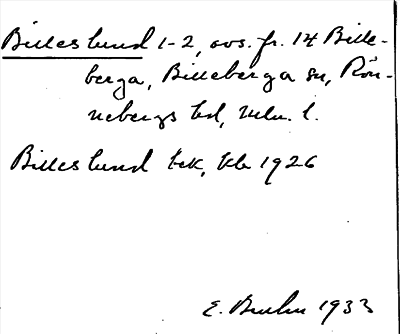 Billeslund 1-2, avs. fr. 14 Bille-
berga, Billeberga sn, Rön-
nebergs hd, Mlm. l.
Billeslund tek, kb 1926
E. Bruhn 1933